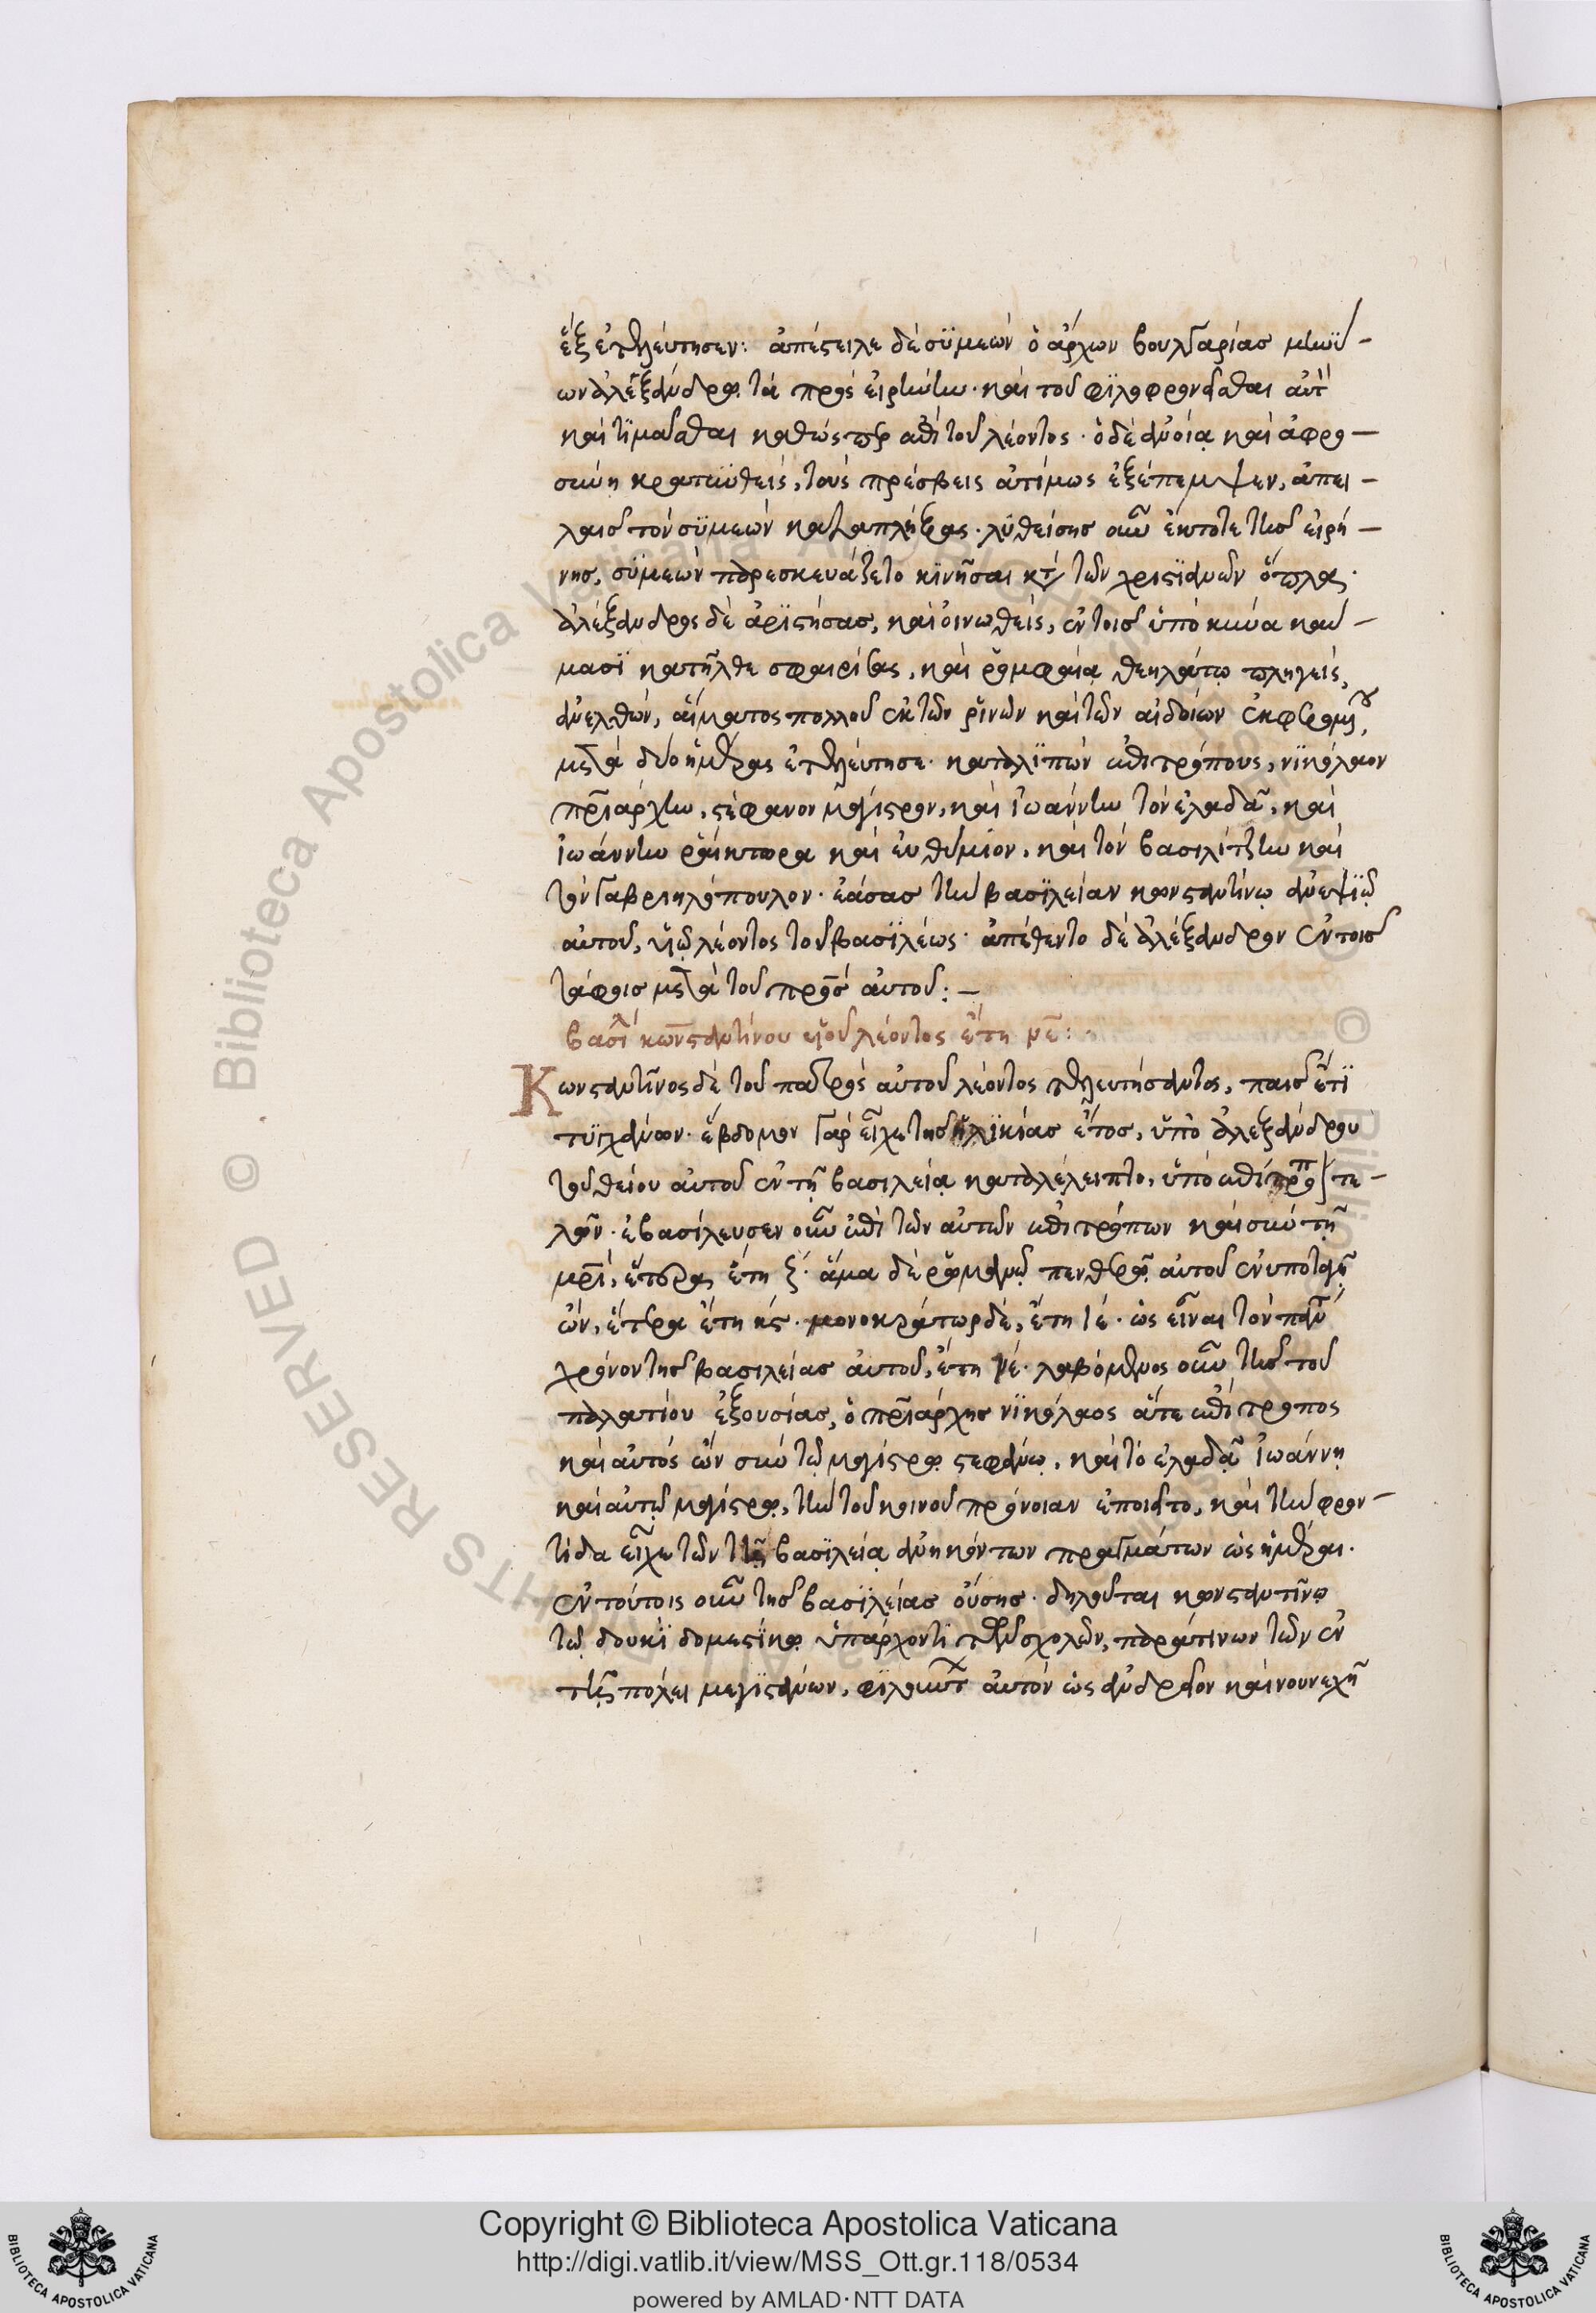 ἐξετελεύτησεν: ἀπέστειλε δὲ συμεὼν ὁ ἄρχων βουλγαρίας μηνύ-
ων ἀλεξάνδρω τὰ πρὸς εἰρήνην· καὶ τοῦ φϊλοφρονεῖσθαι αὐτὸν
καὶ τϊμᾶσθαι καθὼς περ ἐπὶ τοῦ λέοντος· ὁ δὲ ἀνοία καὶ ἀφρο-
σύνη κρατυνθεὶς, τοὺς πρέσβεις ἀτίμως ἐξέπεμψεν, ἀπει-
λαῖς τὸν συμεὼν καταπλήξας· λυθείσης οὖν ἔκτοτε τῆς εἰρή-
νης, συμεὼν παρεσκευάζετο κϊνῆσαι κατὰ τῶν χριστϊανῶν ὅπλα·
ἀλέξανδρος δὲ ἀρϊστήσας, καὶ οἰνωθεὶς, ἐν τοῖς ὑπὸ κύνα καύ-
μασϊ κατῆλθε σφαιρίσας, καὶ ῥομφαία θεηλάτω πληγεὶς,
ἀνελθὼν, αἵματος πολλοῦ ἐκ τῶν ῥινῶν καὶ τῶν αἰδοίων ἐκφερομένου,
μετὰ δύο ἡμέρας ἐτελεύτησε· καταλϊπὼν ἐπιτρόπους, νϊκόλαον
πατριάρχην, στέφανον μάγιστρον, καὶ ἰωάννην τὸν ἐλαδᾶ, καὶ
ἰωάννην ῥαίκτωρα καὶ εὐθύμιον, καὶ τὸν βασιλίτζην καὶ
τὸν γαβριηλόπουλον· ἐάσας τὴν βασϊλείαν κωνσταντίνω ἀνεψϊῶ
αὐτοῦ, υἱῶ λέοντος τοῦ βασϊλέως· ἀπέθεντο δὲ ἀλέξανδρον ἐν τοῖς
τάφοις μετὰ τοῦ πατρὸς αὐτοῦ:-
βασιλεία κωνσταντίνου υἱοῦ λέοντος ἔτη νε:
Κωνσταντῖνος δὲ τοῦ πατρὸς αὐτοῦ λέοντος τελευτήσαντος, παῖς ἔτϊ
τυγχάνων· ἕβδομον γὰρ εἶχε τῆς ἡλϊκίας ἔτος, ὑπὸ ἀλεξάνδρου
τοῦ θείου αὐτοῦ ἐν τῆ βασιλεία καταλέλειπτο, ὑπὸ ἐπιτρόπους τε-
λῶν· ἐβασίλευσεν οὖν ἐπὶ τῶν αὐτῶν ἐπιτρόπων καὶ σὺν τῆ
μητρὶ, ἕτερα ἔτη ζ· ἅμα δὲ ῥωμανῶ πενθερῶ αὐτοῦ ἐν ὑποταγῆ
ὢν, ἕτερα ἔτη κϛ· μονοκράτωρ δὲ, ἔτη ιέ· ὡς εἶναι τὸν πάντα
χρόνον τῆς βασιλείας αὐτοῦ, ἔτη νέ· λαβόμενος οὖν τῆς τοῦ
παλατίου ἐξουσίας, ὁ πατριάρχης νϊκόλαος ἅτε ἐπίτροπος
καὶ αὐτὸς ὢν σὺν τῶ μαγίστρω στεφάνω, καὶ τὸ ἐλαδᾶ ἰωάννη
καὶ αὐτῶ μαγίστρω, τὴν τοῦ κοινοῦ πρόνοιαν ἐποιεῖτο, καὶ τὴν φρον-
τίδα εἶχε τῶν τῆ βασϊλεία ἀνηκόντων πραγμάτων ὡς ἡμέραι.
ἐν τούτοις οὖν τῆς βασϊλείας οὔσης· δηλοῦται κωνσταντίνω
τῶ δουκὶ δομεστίκω ὑπάρχοντι τῶν σχολῶν, παρά τινων τῶν ἐν
τῆ πόλει μεγϊστάνων, αὐτὸν ὡς ἀνδρεῖον καὶ νουνεχῆ
Copyright © Biblioteca Apostolica Vaticana
http://digi.vatlib.it/view/MSS_Ott.gr.118/0534
powered by AMLAD·NTT DATA